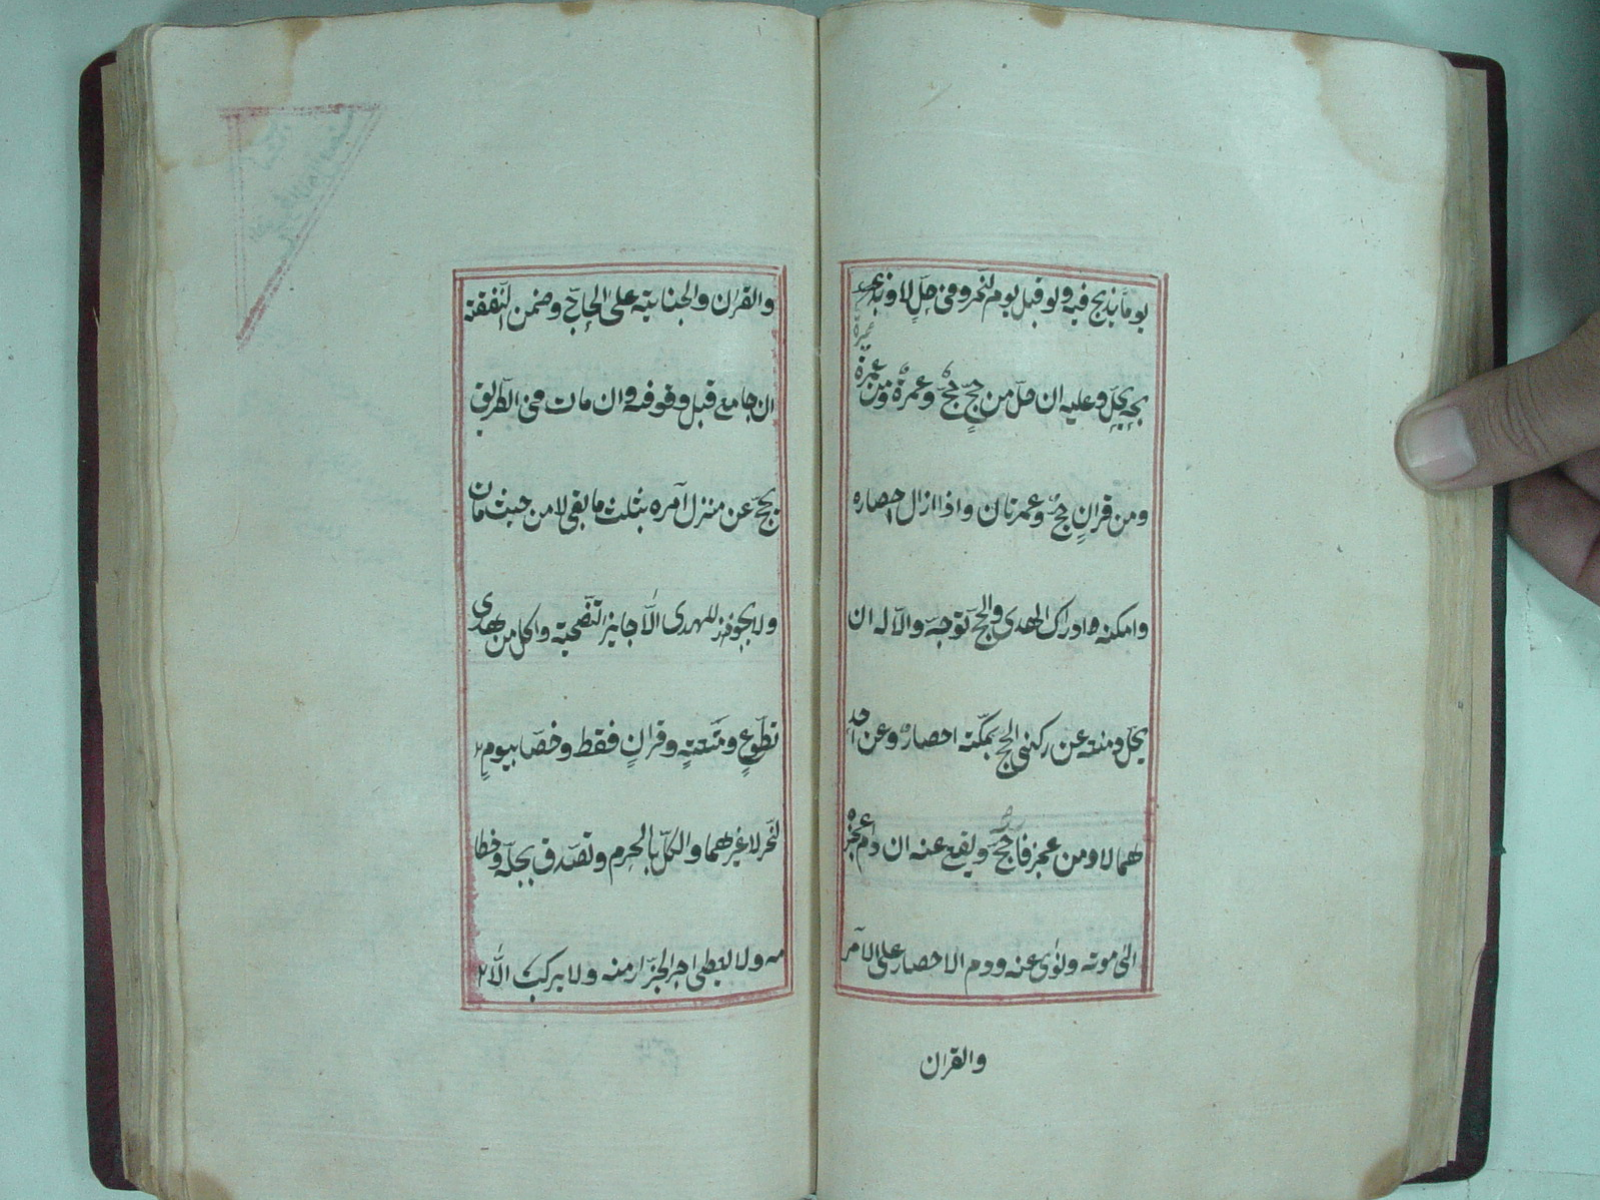 يوما يذبح فيه ولو قبل يوم النحر وفى حل لا وبذبحه
يحل وعليه ان حل من حج حج وعمرة ومن عمرة عمرة
ومن قران حج وعمرتان واذا زال احصاره
وامكنه ادراك الهدى والحج توجه والا له ان
يحل ومنعه عن ركنى الحج بمكة احصار وعن احد
هما لا ومن عجز فاحج صح ويقع عنه ان دام عجزه
الى موته ونوى عنه ودم الاحصار على الآمر
والقران
والقران والجناية على الحاج وضمن النفقة
ان جامع قبل وقوفه وان مات فى الطريق
يحج عن منزل آمره بثلث ما بقى لا من حيث مات
ولا يجوز للهدى الا جائز التضحية واكل من هدى
تطوع ومتعة وقران فقط وخصا بيوم
النحر لا غيرهما والكل بالحرم وتصدق بجله وخطا
مه ولا يعطى اجر الجزار منه ولا يركب الا